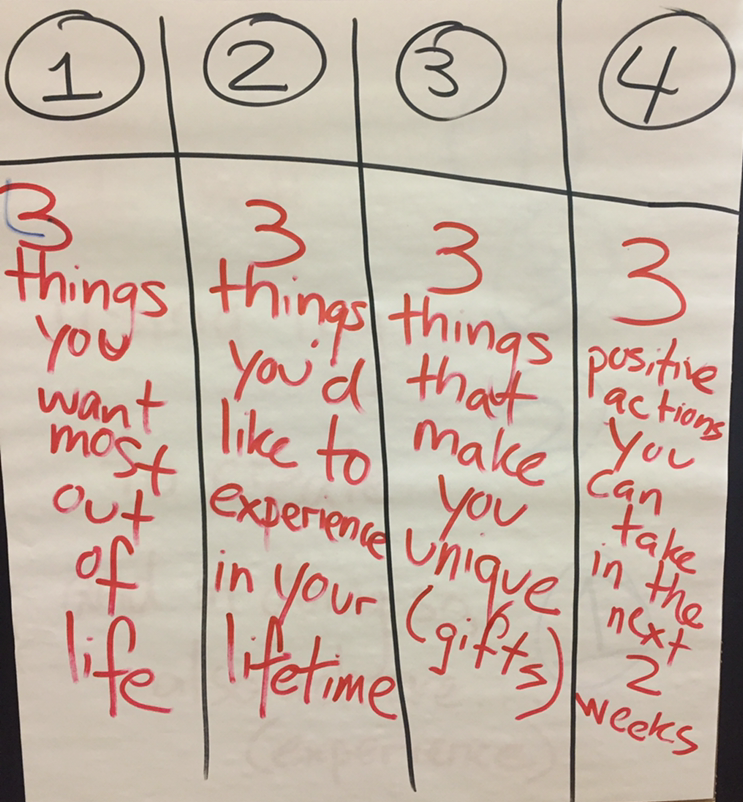 1
2
3
4
3
things
you
want
most
out
of
life
3
things
you'd
like to
experience
in your
lifetime
3
things
that
make
you
unique
(gifts)
3
positive
actions
you
can
take
in the
next
2
weeks
(experience)